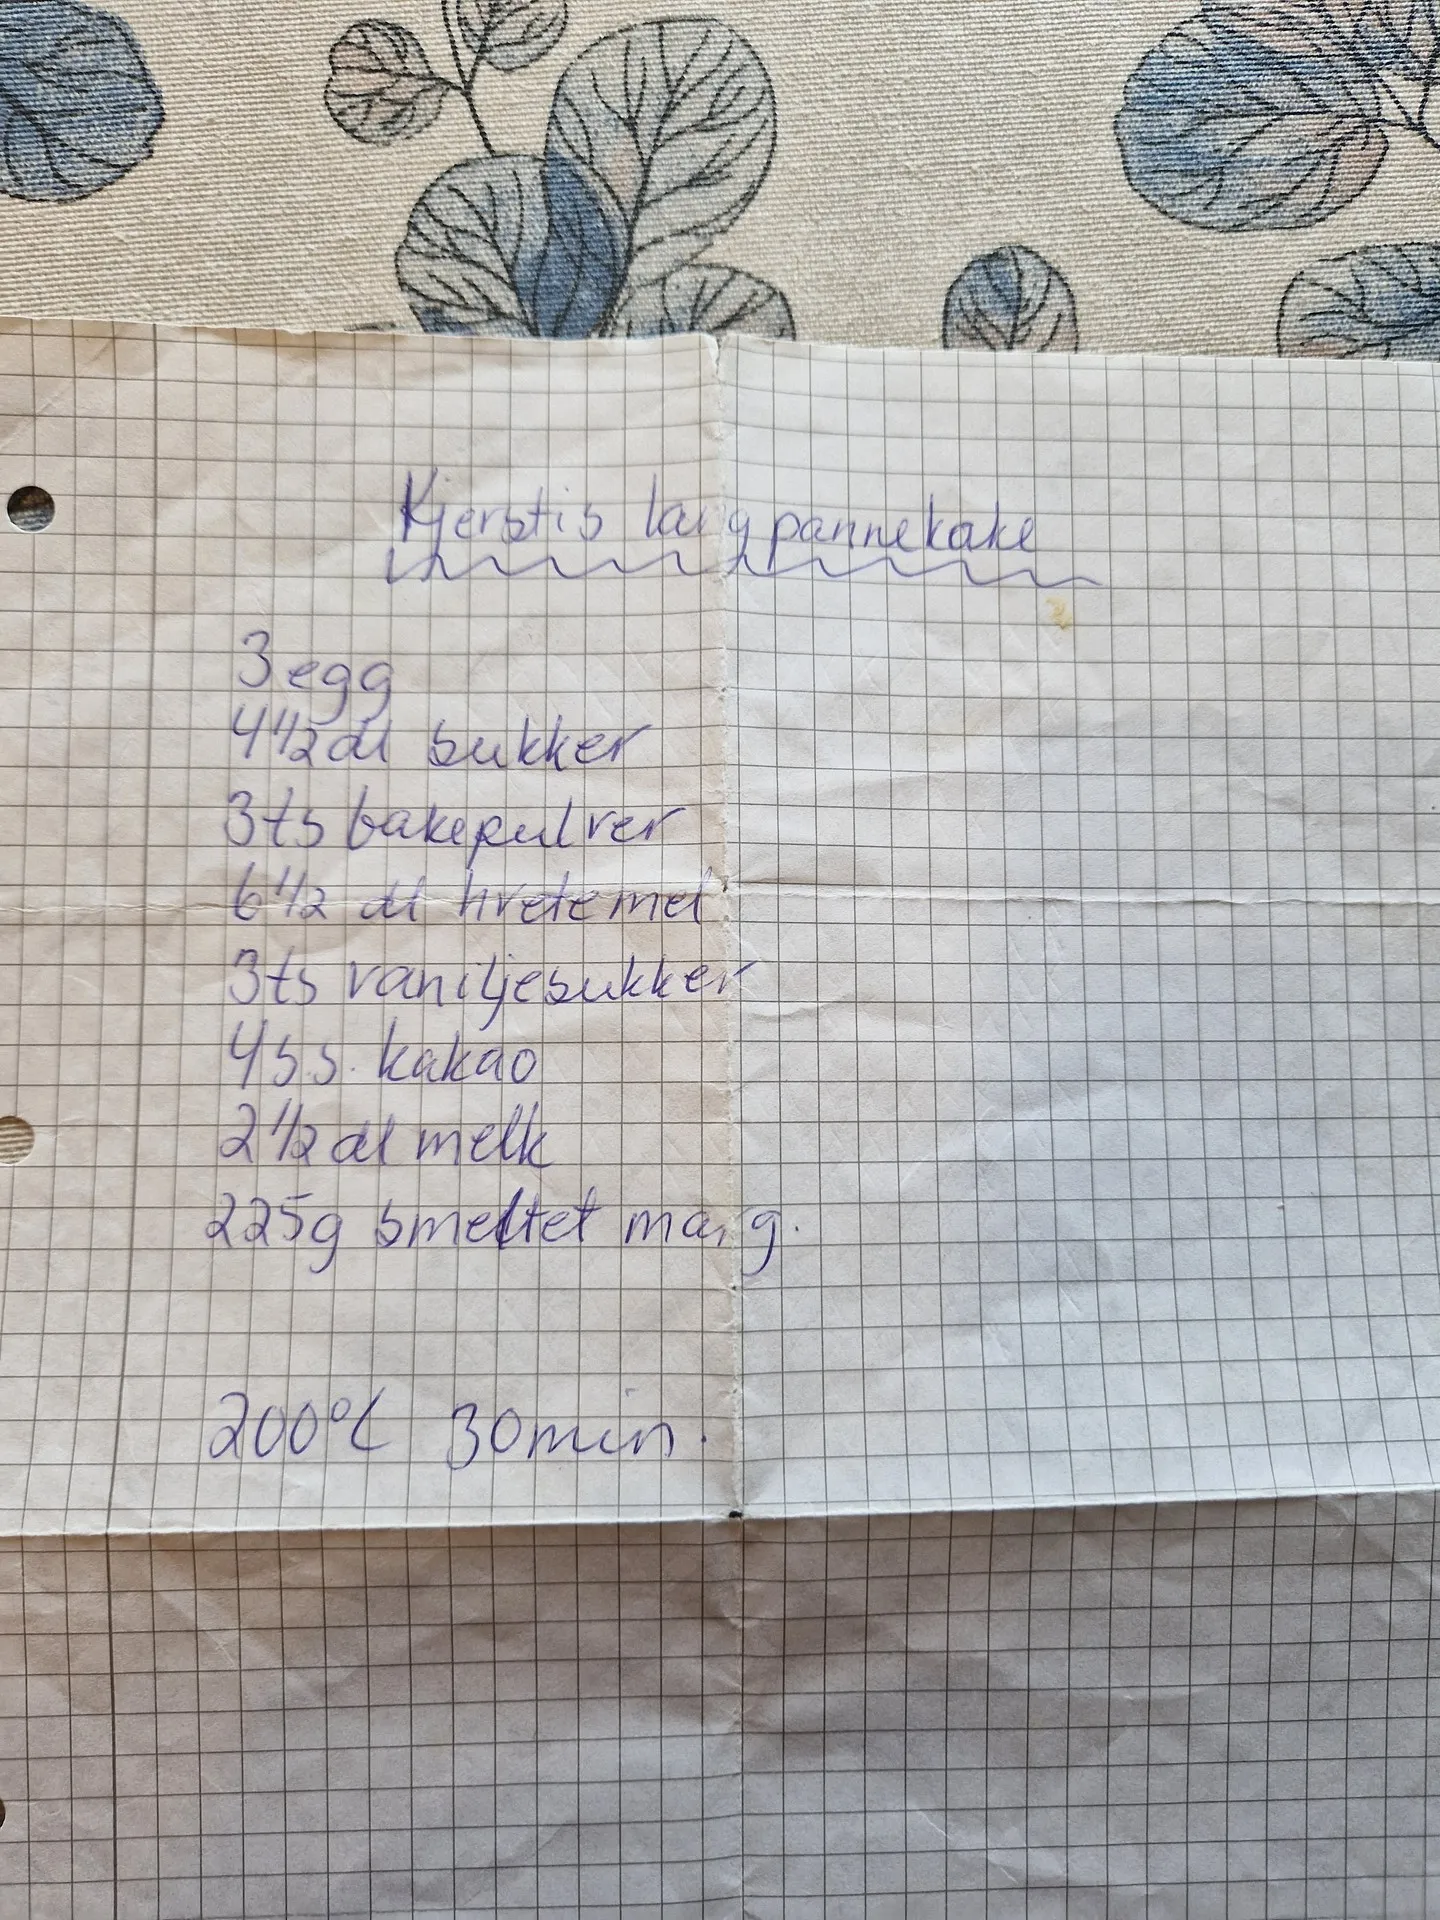 Kjerstis langpannekake
3 egg
4 1/2 dl sukker
3 ts bakepulver
6 1/2 dl hvetemel
3 ts vaniljesukker
4 s.s. kakao
2 1/2 dl melk
225g smeltet marg.
200°C 30 min.